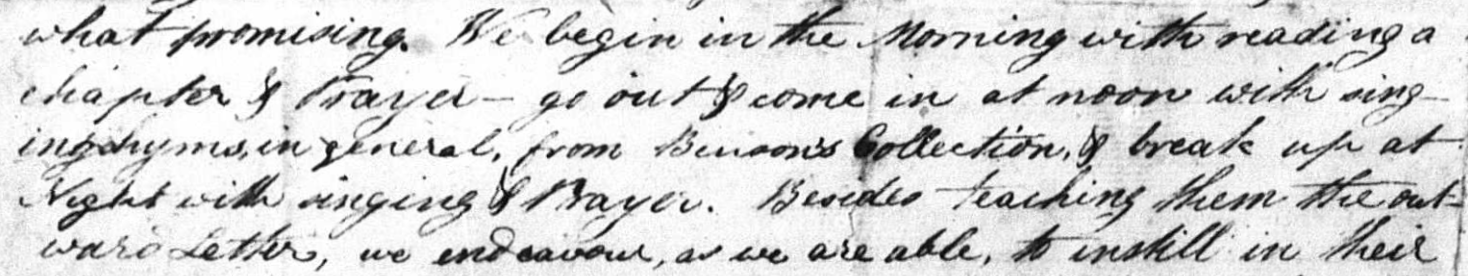 what promising. We begin in the Morning with reading a
chapter & Prayer – go out & come in at noon with sing-
ing hyms, in general, from Benson's Collection, & break up at
Night with singing & Prayer. Besides teaching them the out-
ward Letter, we endeavour, as we are able, to instill in their